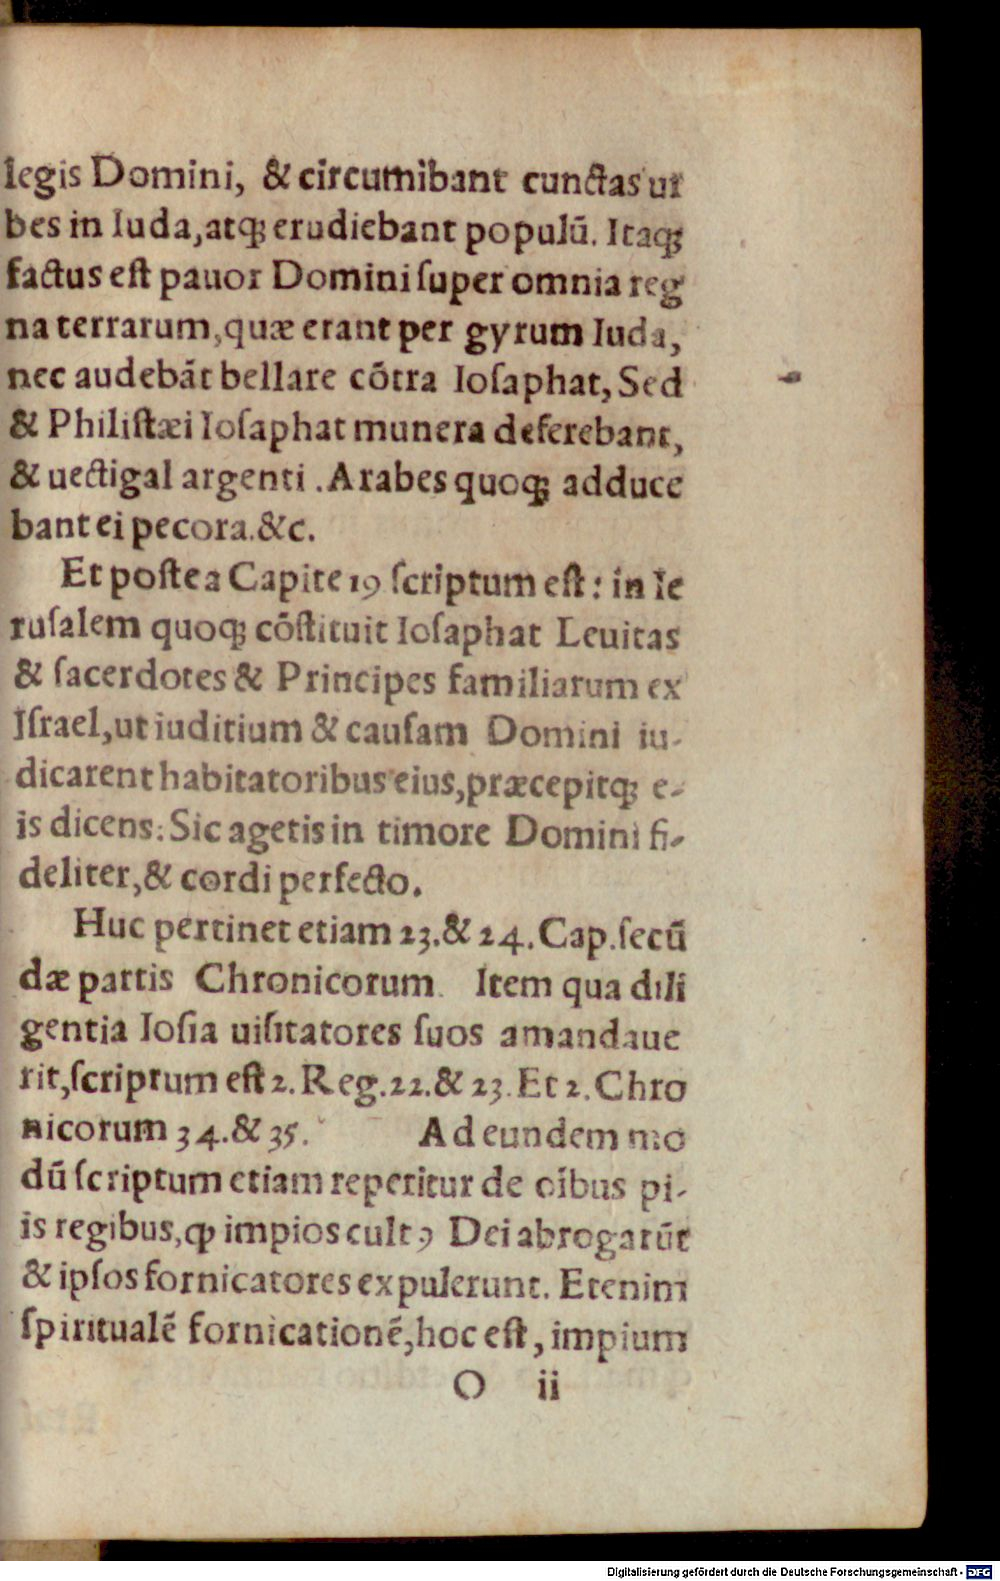 legis Domini, & circumibant cunctas ur
bes in Iuda, atq; erudiebant populū. Itaq;
factus est pauor Domini ſuper omnia reg
na terrarum, quæ erant per gyrum Iuda,
nec audebāt bellare cōtra Ioſaphat, Sed
& Philistæi Ioſaphat munera deferebant,
& uectigal argenti . Arabes quoq; adduce
bant ei pecora. &c.
Et postea Capite 19 ſcriptum est: in Ie
ruſalem quoq; cōstituit Ioſaphat Leuitas
& ſacerdotes & Principes familiarum ex
Iſrael, ut iuditium & cauſam Domini iu-
dicarent habitatoribus eius, præcepitq; e-
is dicens: Sic agetis in timore Domini fi-
deliter, & cordi perfecto.
Huc pertinet etiam 23. & 24. Cap. ſecū
dæ partis Chronicorum. Item qua dili
gentia Ioſia uiſitatores ſuos amandaue
rit, ſcriptum est 2. Reg. 22. & 23. Et 2. Chro
nicorum 34. & 35. Ad eundem mo
dū ſcriptum etiam reperitur de oībus pi-
is regibus, ꝙ impios cultꝯ Dei abrogarūt
& ipſos fornicatores expulerunt. Etenim
ſpiritualē fornicationē, hoc est, impium
O ii
Digitalisierung gefördert durch die Deutsche Forschungsgemeinschaft - DFG